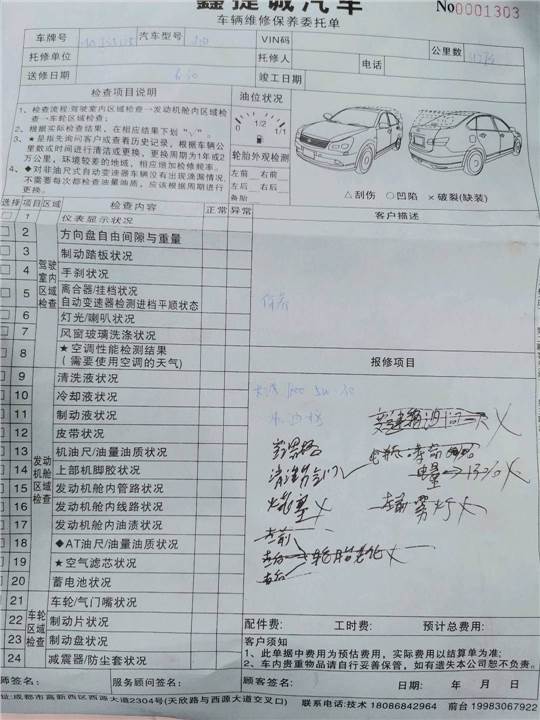 鑫捷诚汽车
车辆维修保养委托单
No0001303
车牌号 汽车型号 VIN码 公里数
托修单位 托修人 电话
送修日期 6.30 竣工日期
检查项目说明 油位状况
1、检查流程:驾驶室内区域检查→发动机舱内区域检查→车轮区域检查;
2、根据实际检查结果,在相应结果下划"√"。
3、★是指先询问客户或查看历史记录,根据车辆公里数或时间进行清洁或更换,更换周期为1年或2万公里,环境较差的地域,相应增加检修频率。
4、◆对非油尺式自动变速器车辆仅有出现泄漏情况,不需要每次都检查油量油质,应该根据周期进行更换。
0 1/2 1/1
轮胎外观检测
左前 右前
左后 右后
备胎
△刮伤 ○凹陷 ×破裂(缺装)
选择 项目 区域 检查内容 正常 异常 客户描述
1 仪表显示状况
2 方向盘自由间隙与重量
3 制动踏板状况
4 手刹状况
5 离合器/挂档状况
自动变速器检测进档平顺状态
6 灯光/喇叭状况
7 风窗玻璃洗涤状况
8 ★空调性能检测结果
(需要使用空调的天气)
驾驶室内区域检查
保养
报修项目
9 清洗液状况
10 冷却液状况
11 制动液状况
12 皮带状况
13 机油尺/油量油质状况
14 上部机脚胶状况
15 发动机舱内管路状况
16 发动机舱内线路状况
17 发动机舱内油渍状况
18 ◆AT油尺/油量油质状况
19 ★空气滤芯状况
20 蓄电池状况
发动机舱区域检查
5W 30
清洗节气门
火花塞 ×
左前雾灯 ×
左前
轮胎老化 ×
21 车轮/气门嘴状况
22 制动片状况
23 制动盘状况
24 减震器/防尘套状况
车轮区域检查
配件费: 工时费: 预计总费用:
客户须知
1、此单据中费用为预估费用,实际费用以结算单为准;
2、车内贵重物品请自行妥善保管,如有遗失本公司恕不负责。
师签名: 服务顾问签名: 顾客签名: 日期: 年 月 日
址:成都市高新西区西源大道2304号(天欣路与西源大道交叉口) 联系电话:技术 18086842964 前台 19983067922